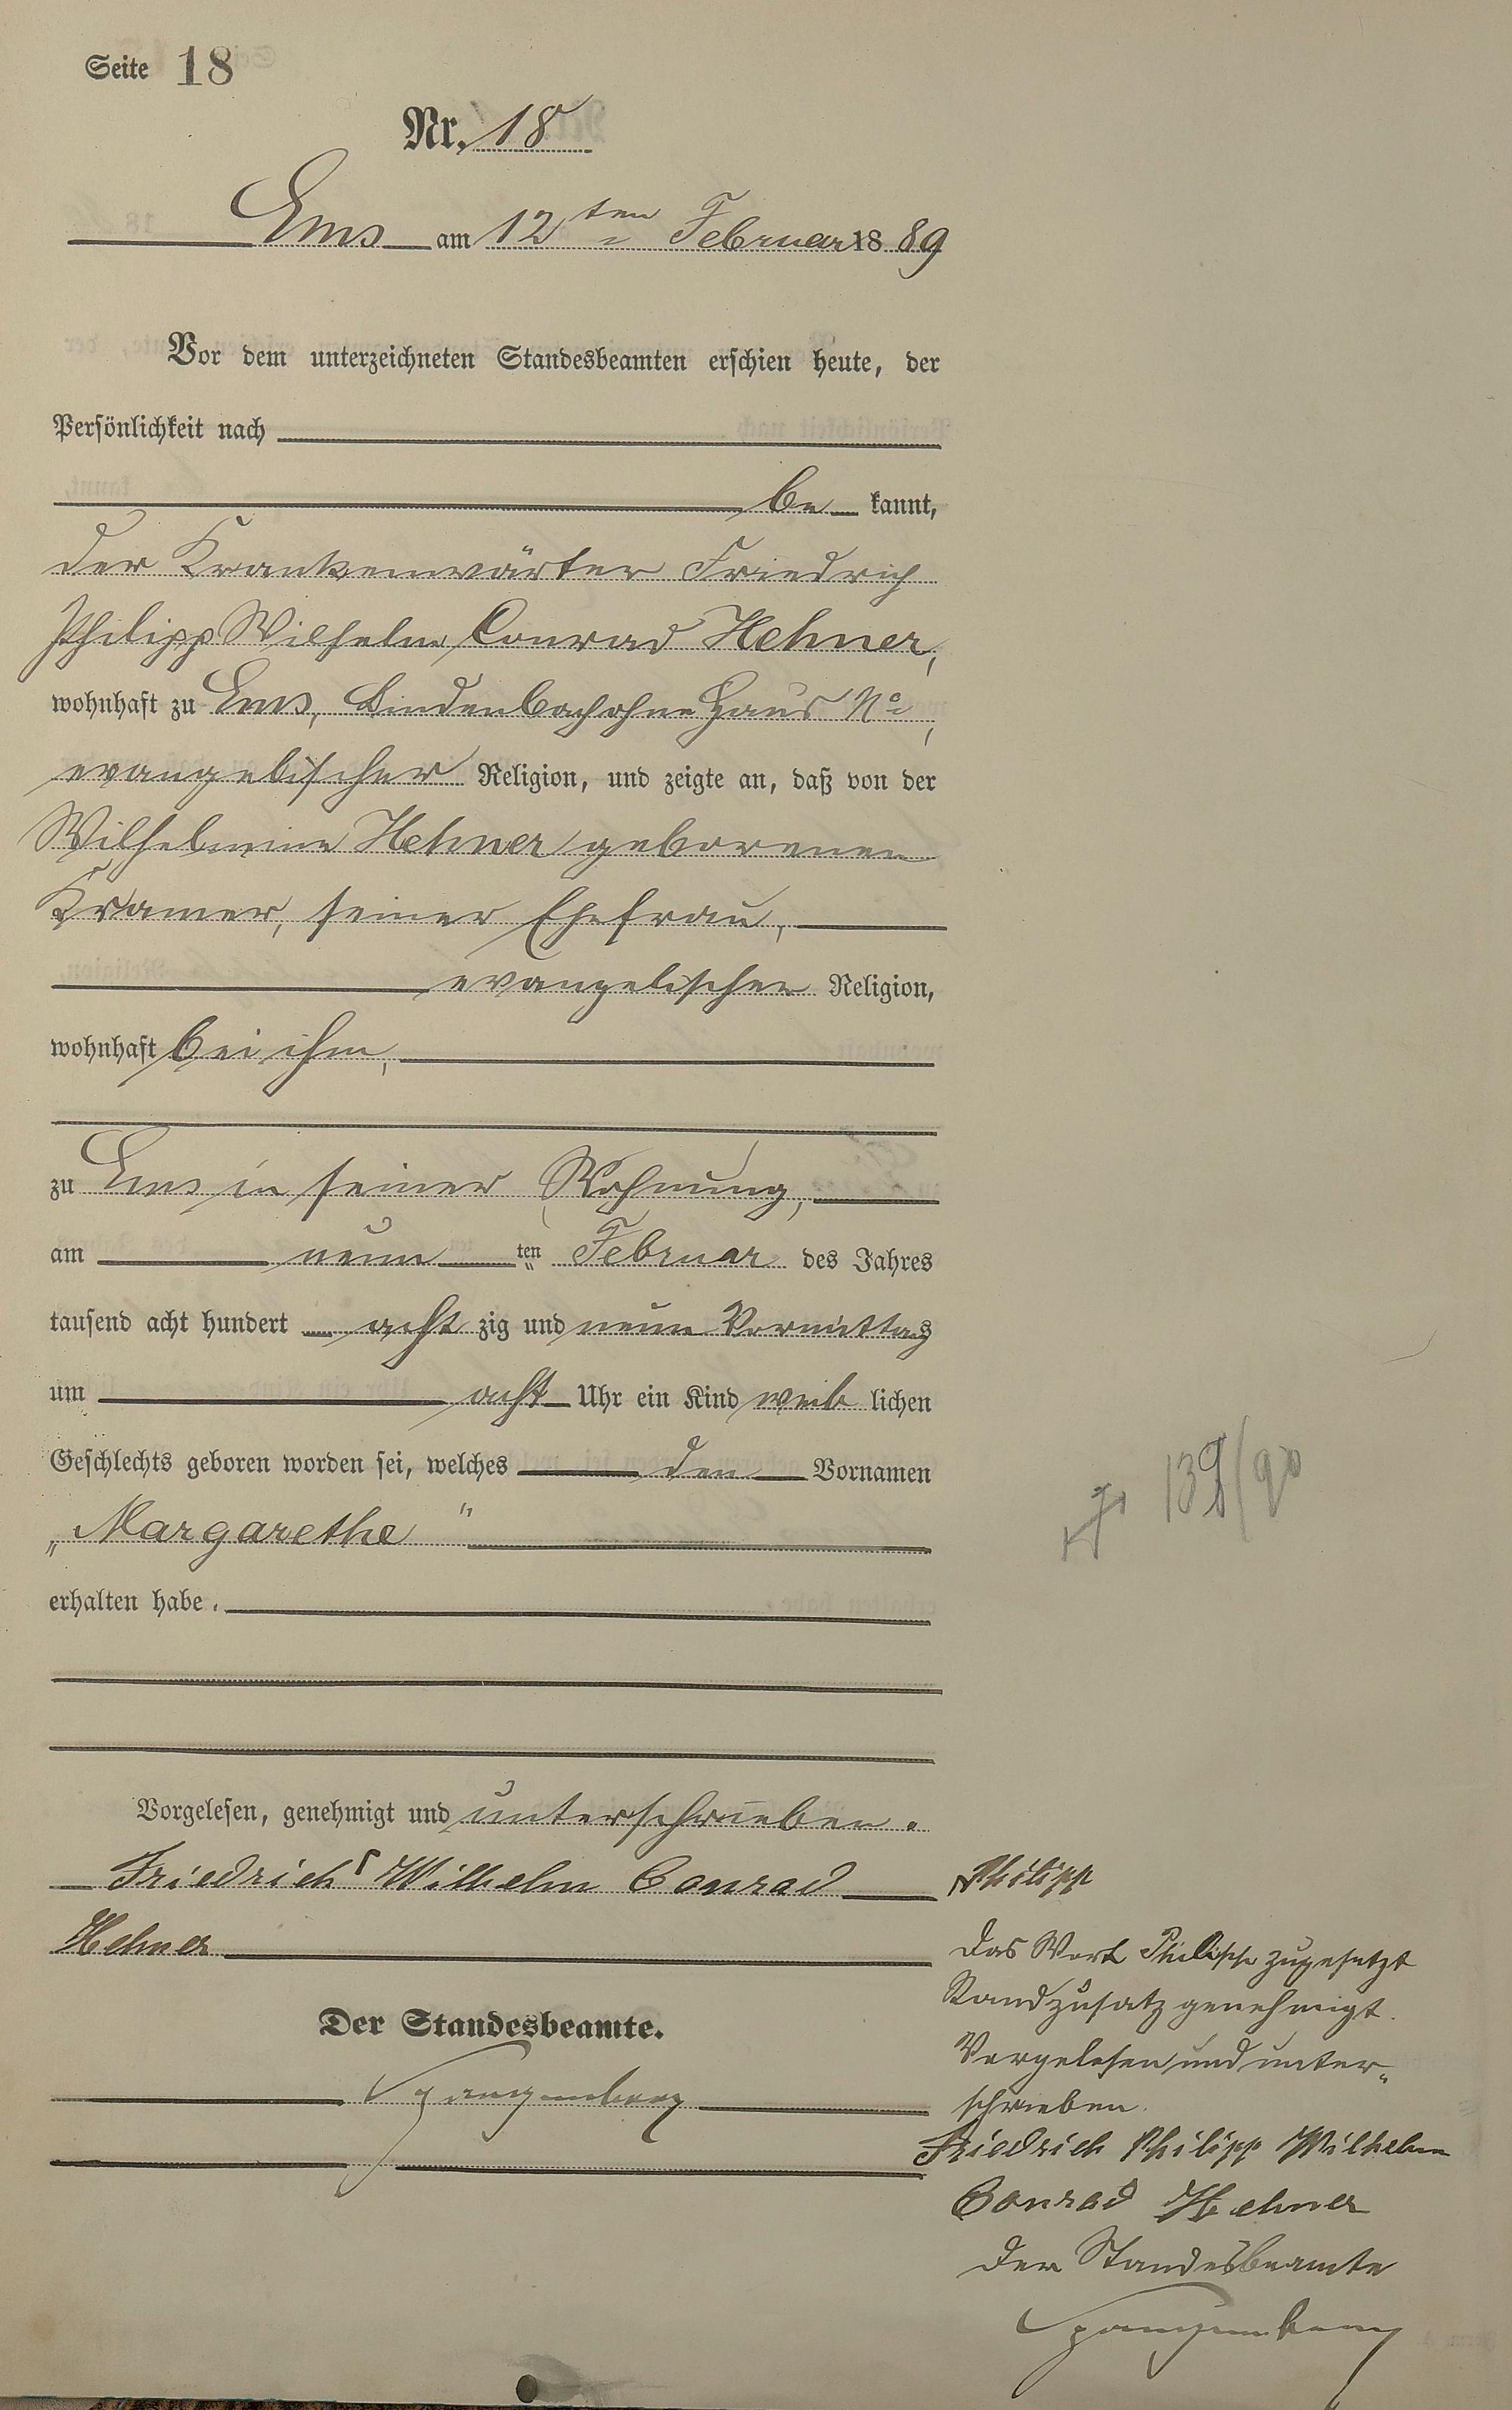 Seite 18
Nr. 18
Ems am 12ten Februar 1889
Vor dem unterzeichneten Standesbeamten erschien heute, der
Persönlichkeit nach
be kannt,
der Krankenwärter Friedrich
Philipp Wilhelm Conrad Hehner,
wohnhaft zu Ems, Lindenbach ohne Haus No,
evangelischer Religion, und zeigte an, daß von der
Wilhelmine Hehner geborenen
Kramer, seiner Ehefrau,
evangelischer Religion,
wohnhaft bei ihm,
zu Ems in seiner Wohnung,
am neun ten Februar des Jahres
tausend acht hundert acht zig und neun Vormittag
um acht Uhr ein Kind weib lichen
Geschlechts geboren worden sei, welches den Vornamen
„Margarethe"
erhalten habe.
139/90
Vorgelesen, genehmigt und unterschrieben.
Friedrich Γ Wilhelm Conrad
Hehner
Der Standesbeamte.
Spangenberg
Γ Philipp
Das Wort Philipp zugesetzt
Randzusatz genehmigt.
Vorgelesen und unter-
schrieben.
Friedrich Philipp Wilhelm
Conrad Hehner
Der Standesbeamte
Spangenberg